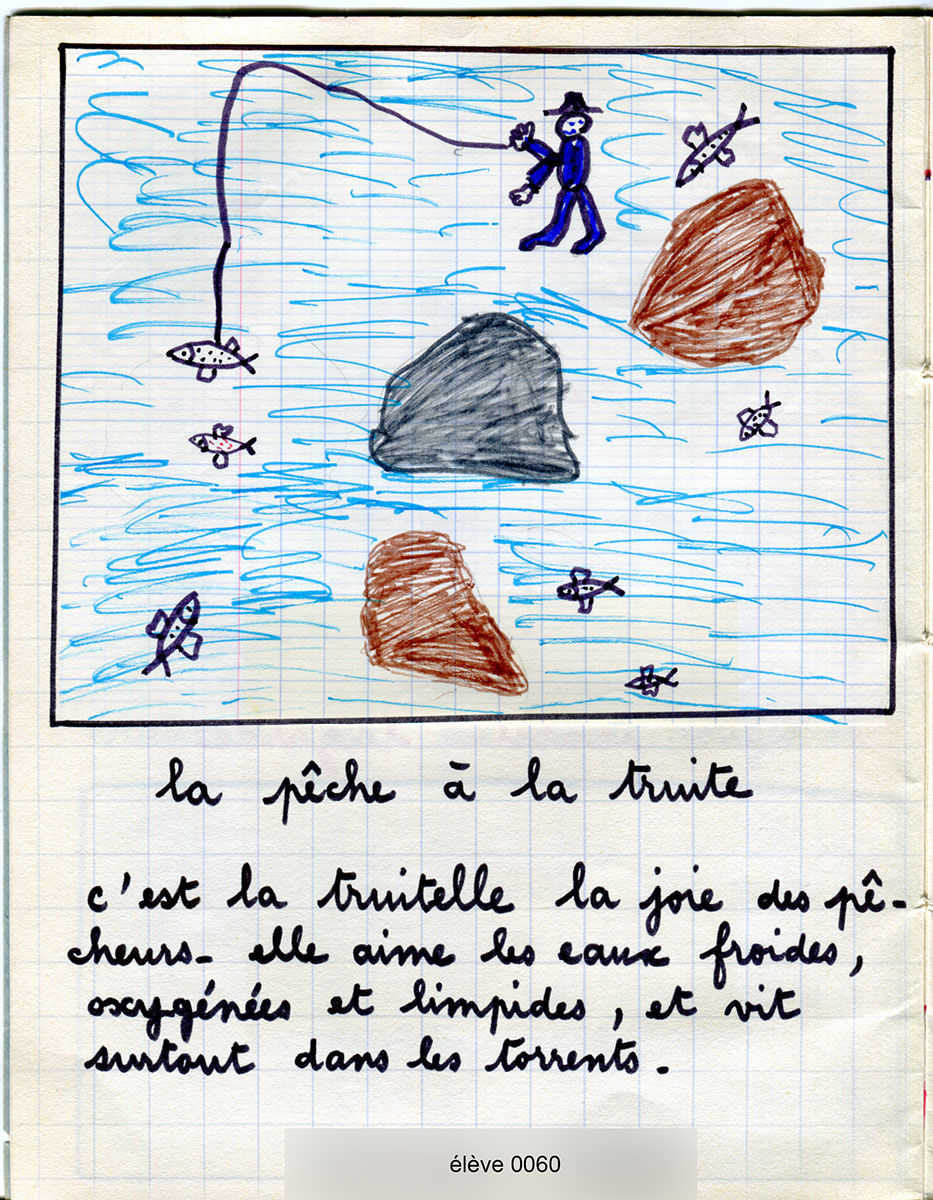 la pêche à la truite
c'est la truitelle la joie des pê-
cheurs. elle aime les eaux froides,
oxygénées et limpides, et vit
surtout dans les torrents.
élève 0060